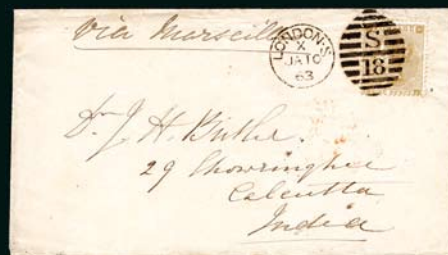 Via Marseilles
LONDON·S
X
JA10
63
S
18
Dr J. H. Butler.
29 Chowringhee
Calcutta
India